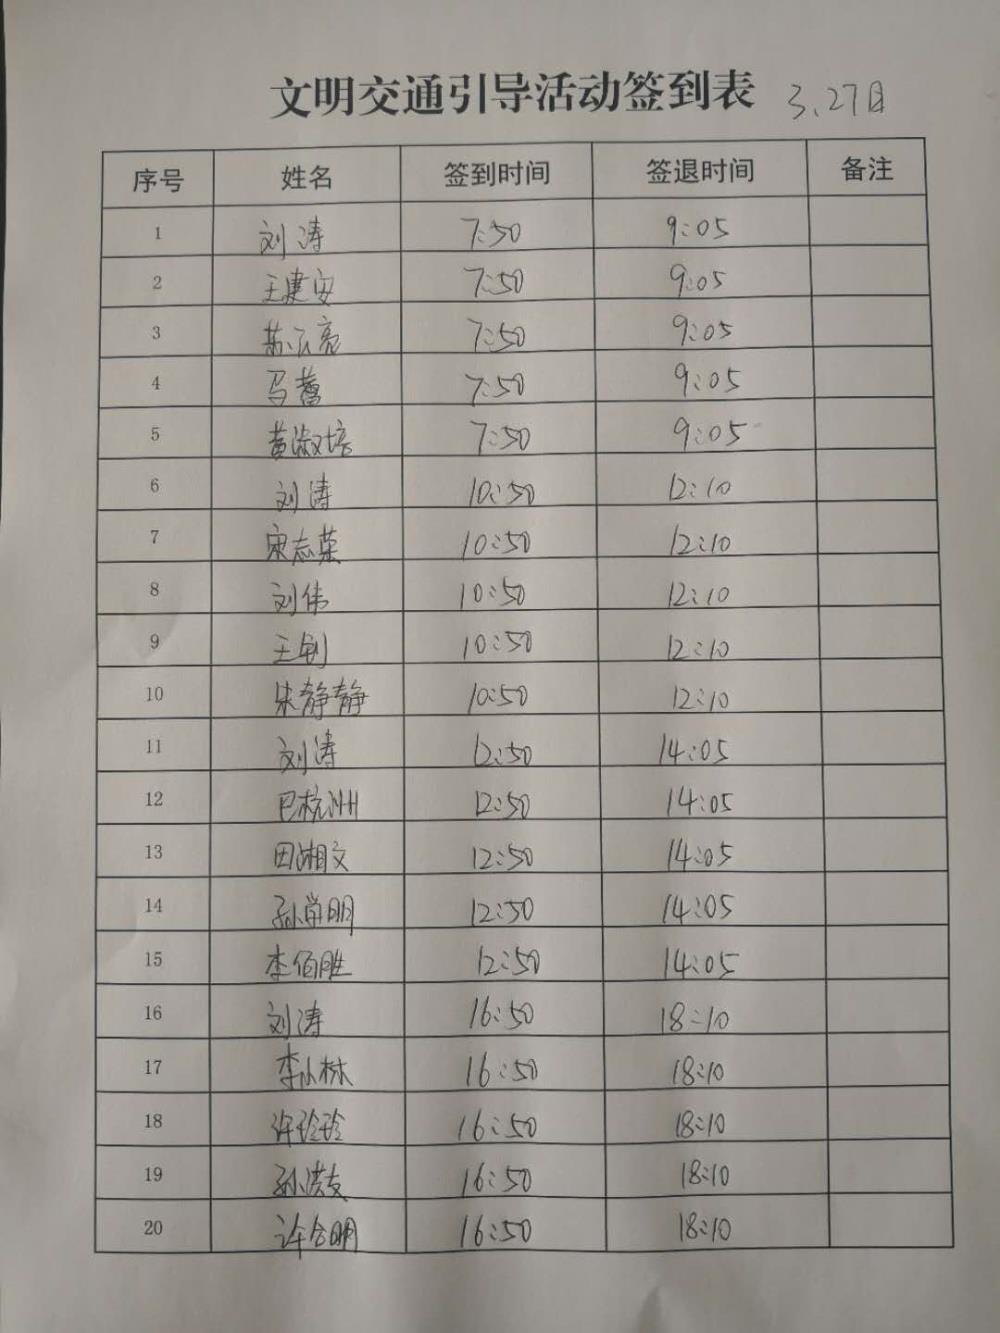 文明交通引导活动签到表 3.27日
序号 姓名 签到时间 签退时间 备注
1 刘涛 7:50 9:05
2 王建安 7:50 9:05
3 苏云亮 7:50 9:05
4 马蕾 7:50 9:05
5 黄淑培 7:50 9:05
6 刘涛 10:50 12:10
7 宋志荣 10:50 12:10
8 刘伟 10:50 12:10
9 王钊 10:50 12:10
10 朱静静 10:50 12:10
11 刘涛 12:50 14:05
12 巴杭州 12:50 14:05
13 田湘文 12:50 14:05
14 12:50 14:05
15 李佰胜 12:50 14:05
16 刘涛 16:50 18:10
17 李小林 16:50 18:10
18 许玲玲 16:50 18:10
19 孙洪友 16:50 18:10
20 许合明 16:50 18:10